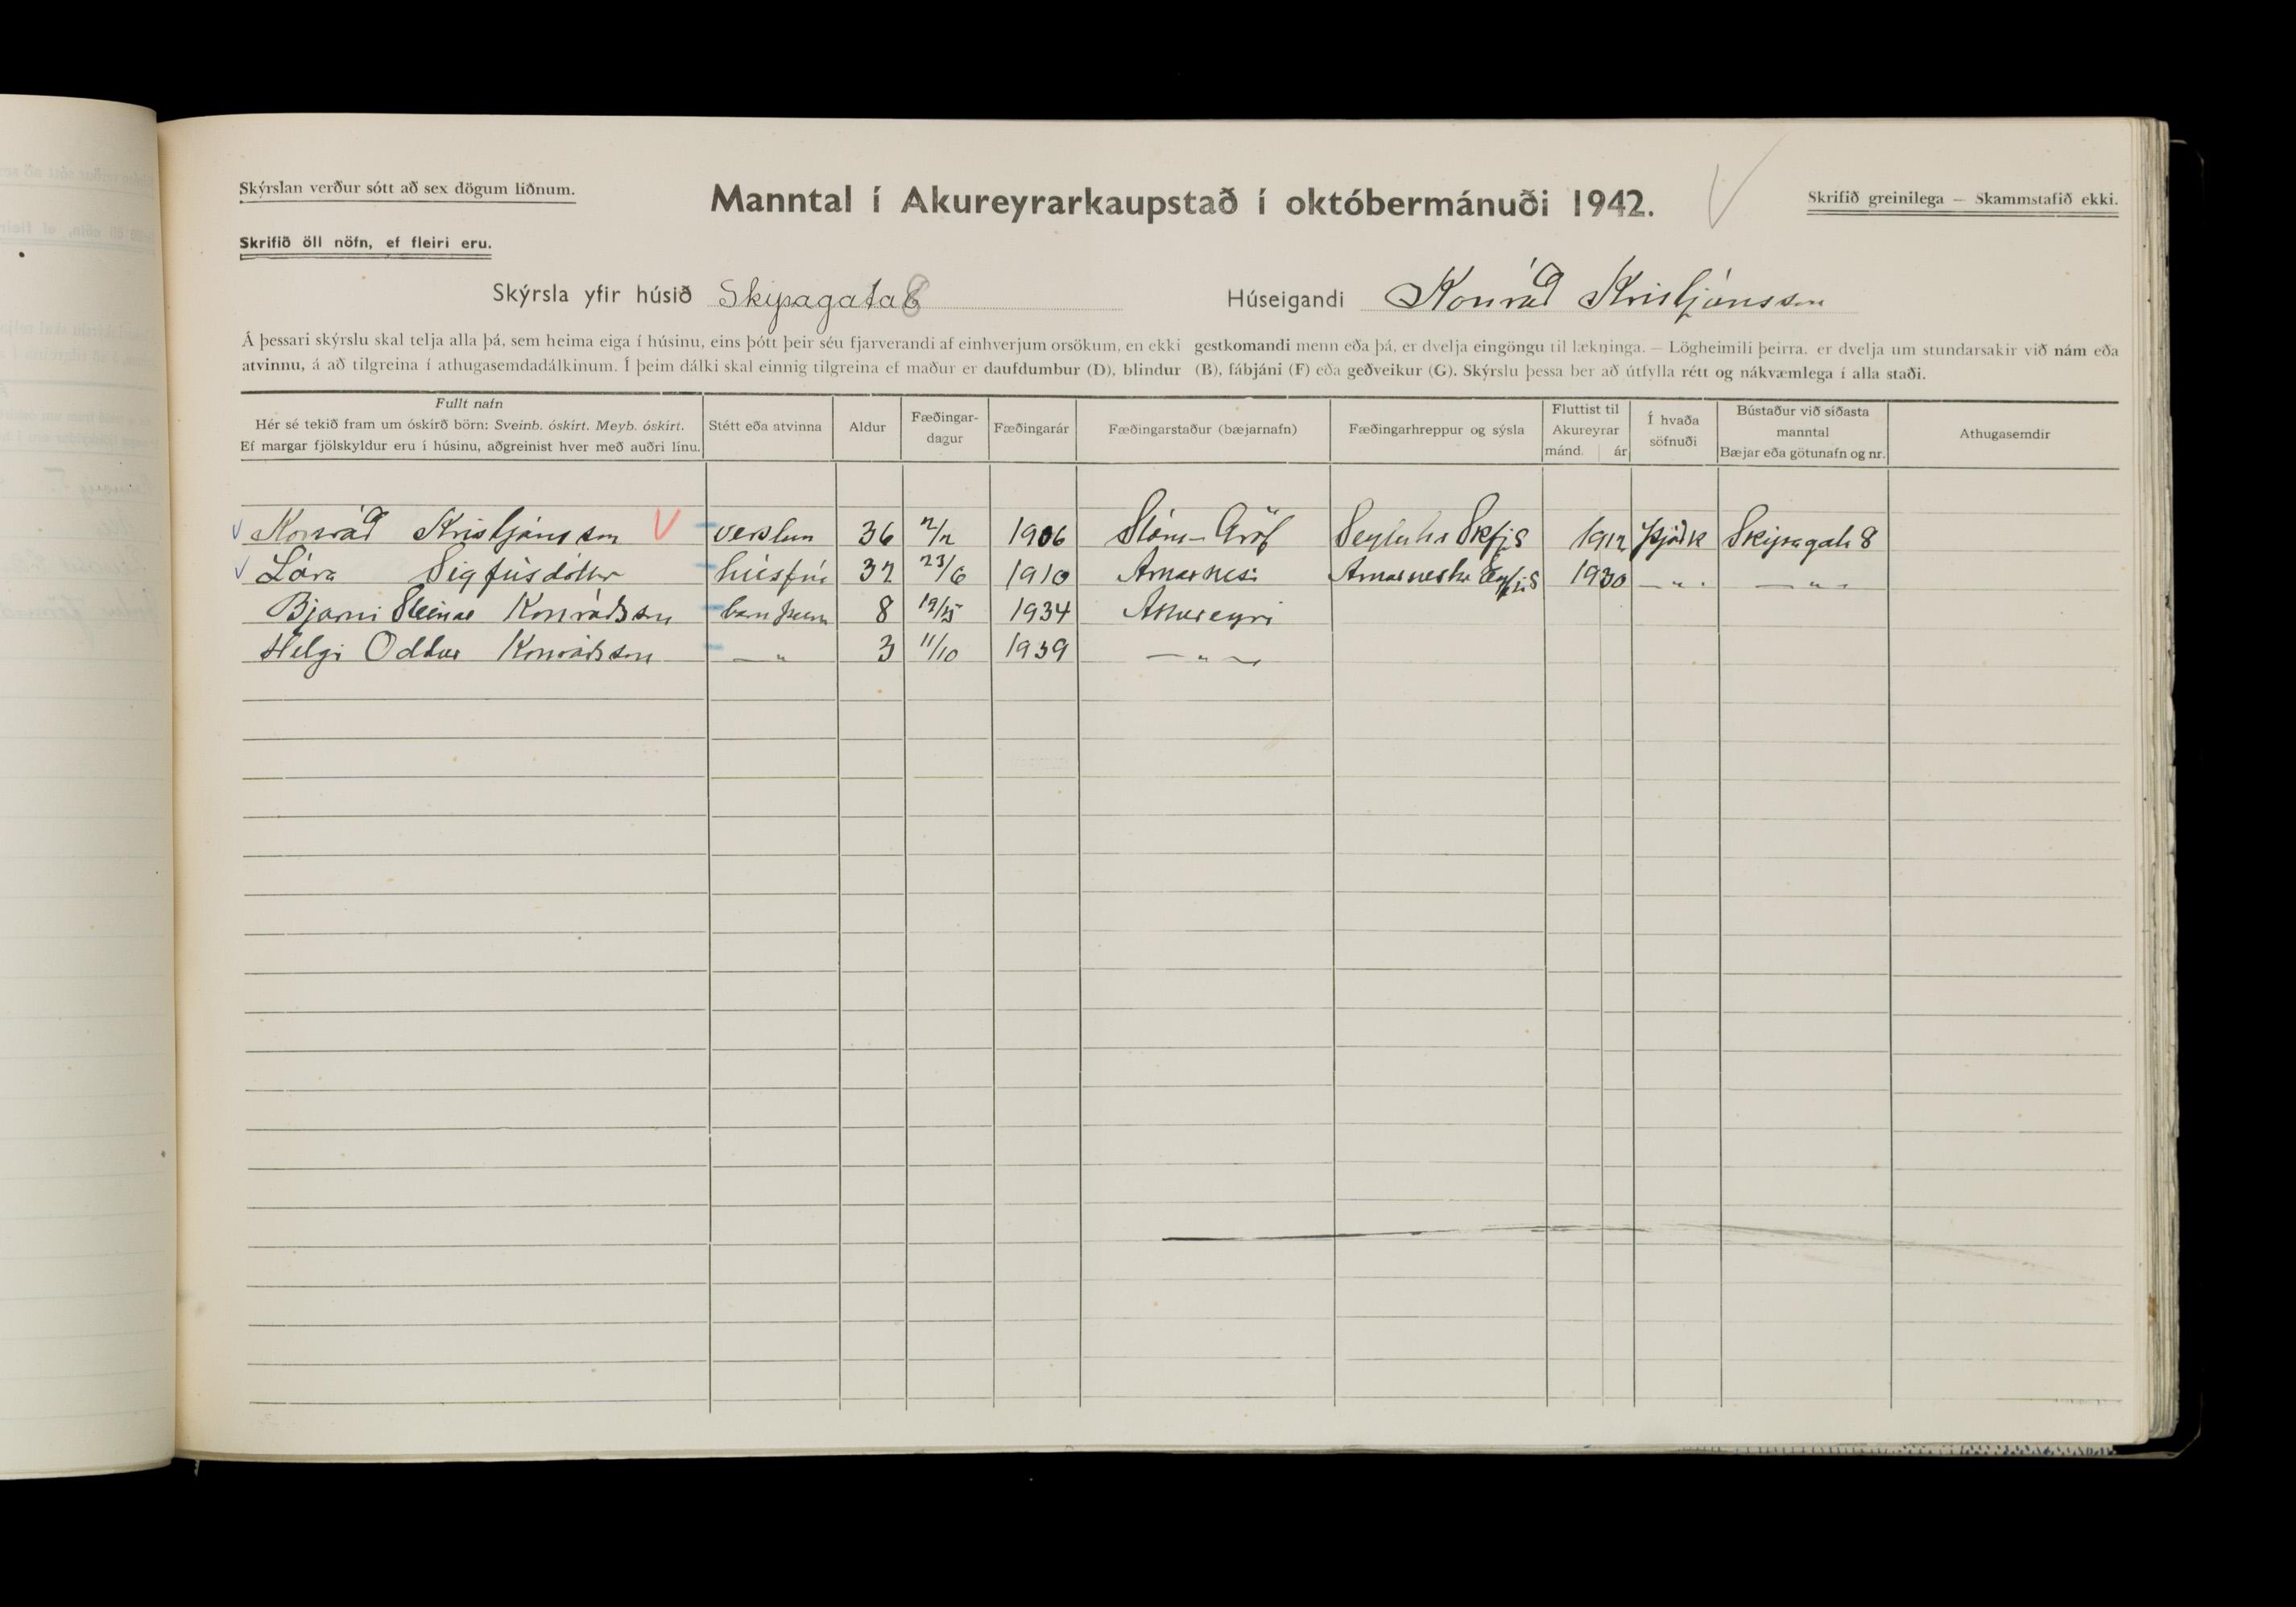 Skýrslan verður sótt að sex dögum liðnum.
Manntal í Akureyrarkaupstað í októbermánuði 1942.
Skrifið greinilega — Skammstafið ekki.
Skrifið öll nöfn, ef fleiri eru.
Skýrsla yfir húsið Skipagata 8
Húseigandi Konráð Kristjánsson
Á þessari skýrslu skal telja alla þá, sem heima eiga í húsinu, eins þótt þeir séu fjarverandi af einhverjum orsökum, en ekki gestkomandi menn eða þá, er dvelja eingöngu til lækninga. — Lögheimili þeirra, er dvelja um stundarsakir við nám eða
atvinnu, á að tilgreina í athugasemdadálkinum. Í þeim dálki skal einnig tilgreina ef maður er daufdumbur (D), blindur (B), fábjáni (F) eða geðveikur (G). Skýrslu þessa ber að útfylla rétt og nákvæmlega í alla staði.
Fullt nafn
Hér sé tekið fram um óskírð börn: Sveinb. óskírt. Meyb. óskírt.
Ef margar fjölskyldur eru í húsinu, aðgreinist hver með auðri línu.
Stétt eða atvinna
Aldur
Fæðingar-
dagur
Fæðingarár
Fæðingarstaður (bæjarnafn)
Fæðingarhreppur og sýsla
Fluttist til
Akureyrar
mánd. ár
Í hvaða
söfnuði
Bústaður við síðasta
manntal
Bæjar eða götunafn og nr.
Athugasemdir
Konráð Kristjánsson verslun 36 2/2 1906 Stóru-Gröf Skfj.s 1912 Þjóðk Skipagata 8
Lára Sigfúsdóttir húsfrú 32 23/6 1910 Arnarnesi Arnarneshr Eyfj.s 1930 — " — — " —
Bjarni Steinar Konráðsson barn 8 1934 Akureyri
Helgi Oddur Konráðsson — " 3 11/10 1939 — " —